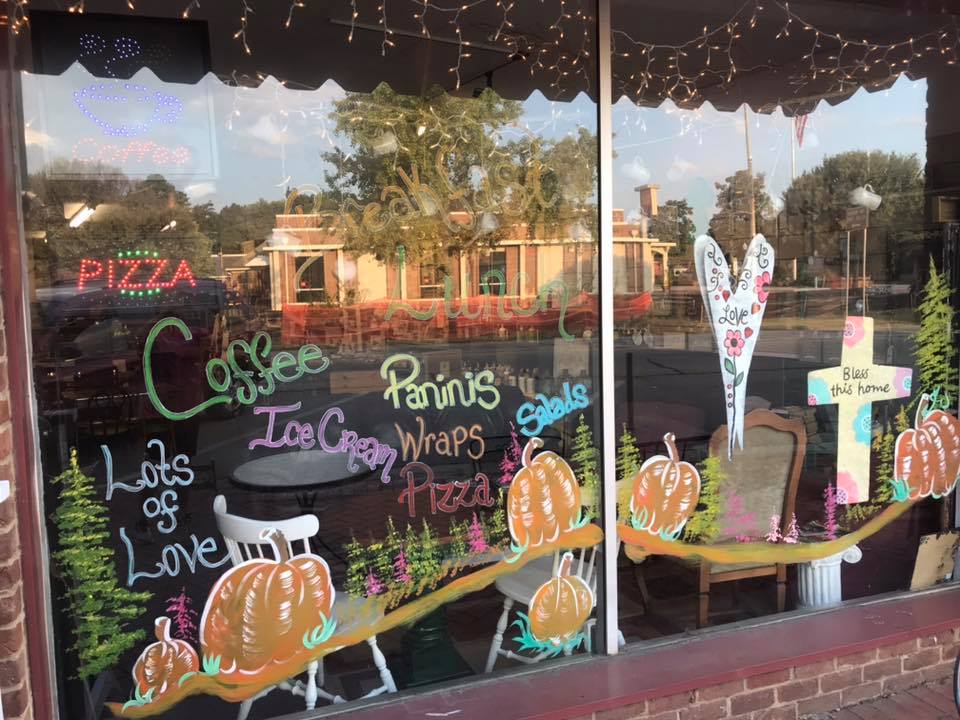 Coffee
PIZZA
Breakfast
Lunch
Coffee
Ice Cream
Paninis
Wraps
Pizza
Salads
Lots
of
Love
LOVE
Bless
this home